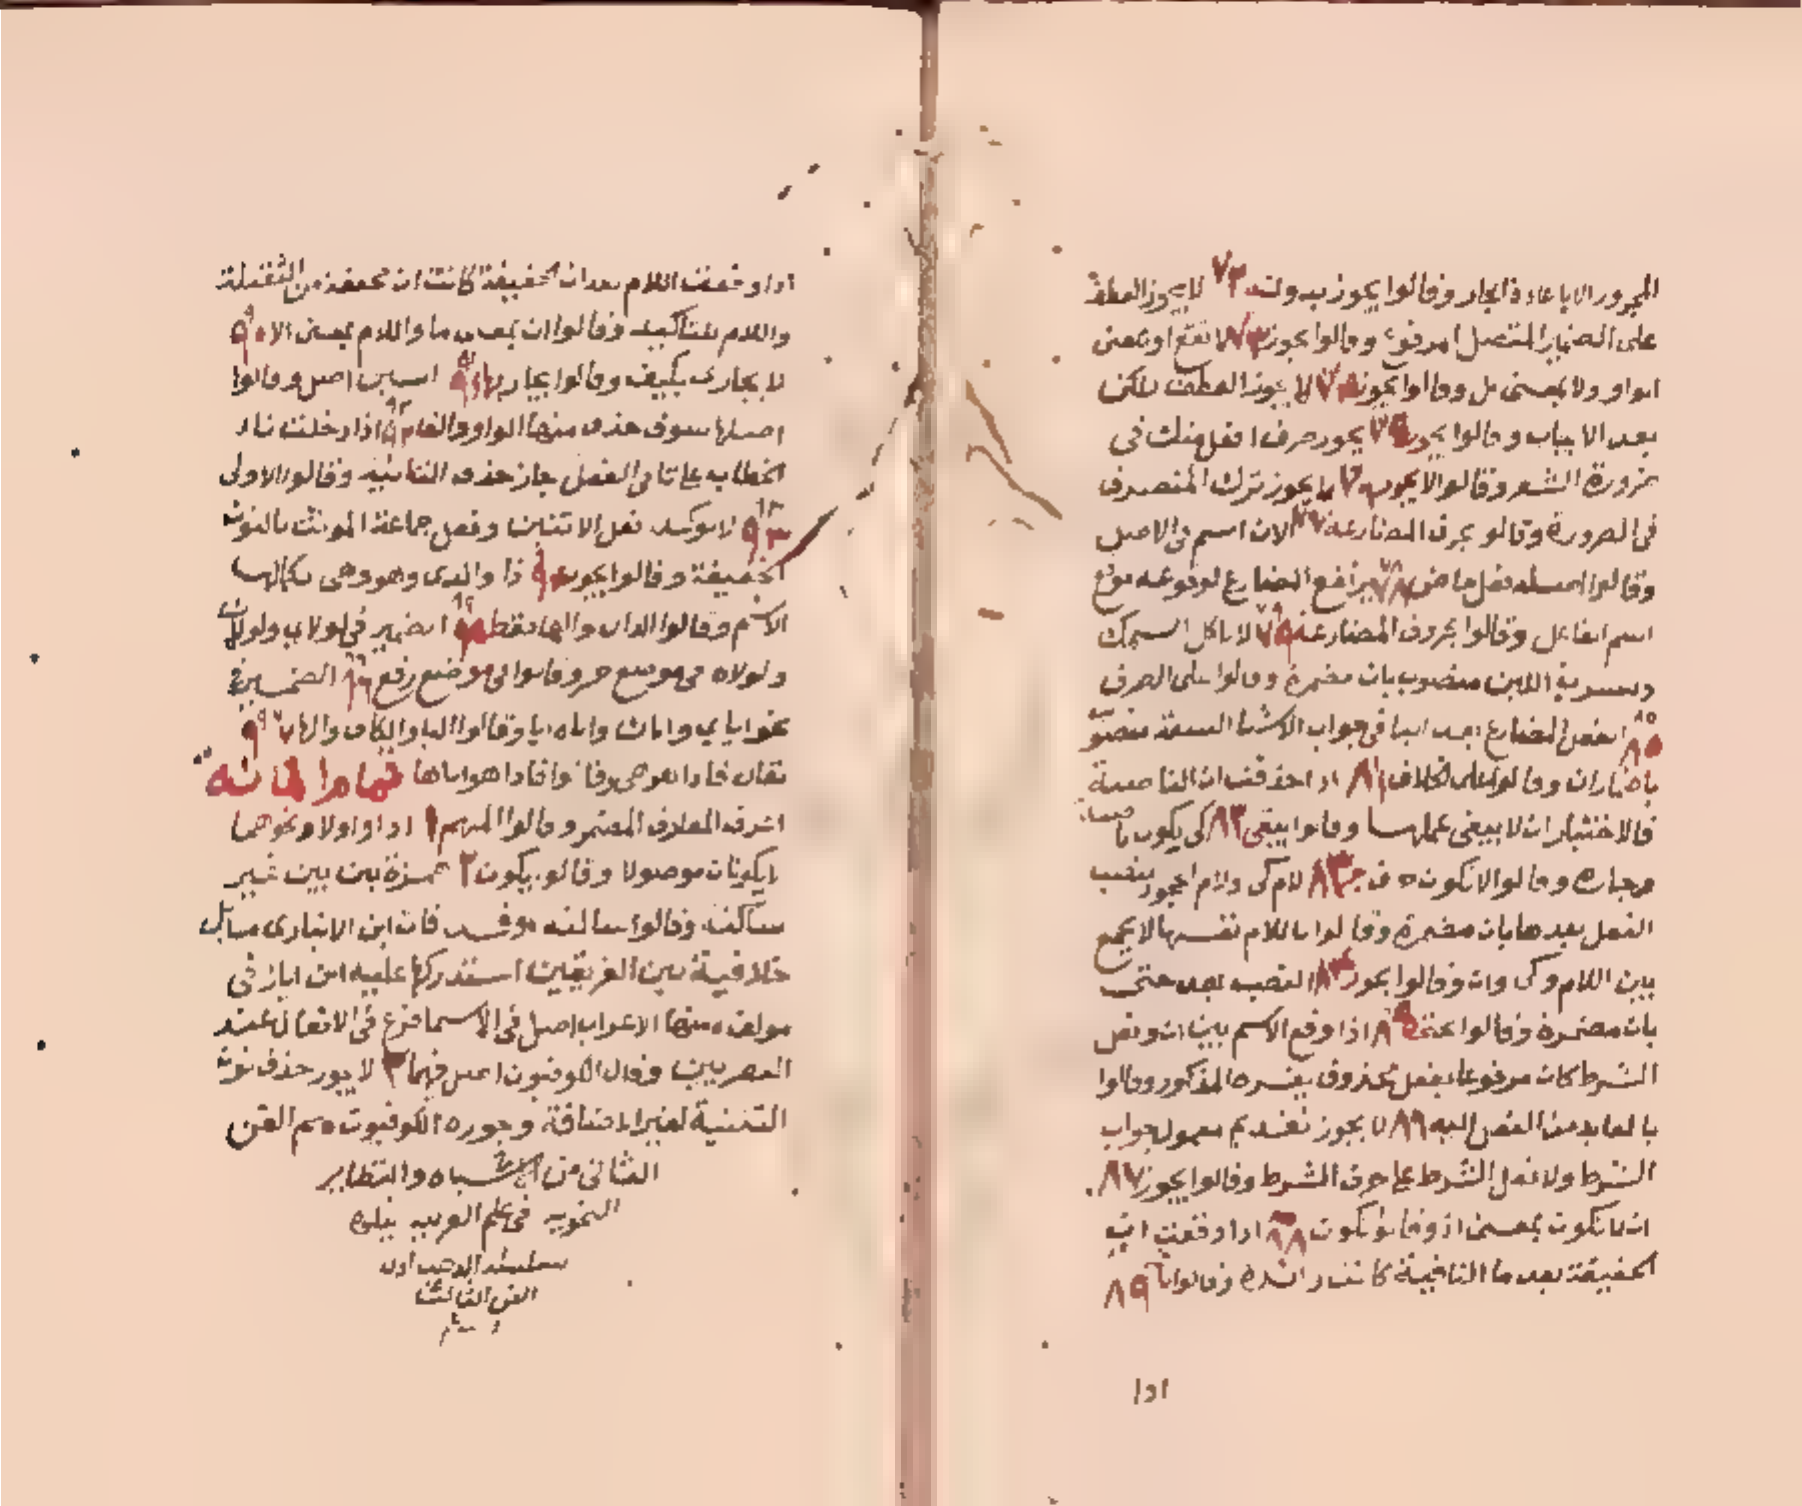 المجرور الا باعادة الجار وقالوا يجوز بدونه ٧٣ لا يجوز العطف
على الضمير المتصل المرفوع وقالوا يجوز لا تقع او بمعنى
الواو ولا بمعنى بل وقالوا يجوز ٧٥ لا يجوز العطف بلكن
بعد الايجاب وقالوا يجوز يجوز صرف افعل منك فى
ضرورة الشعر وقالوا لا يجوز لا يجوز ترك المنصرف
فى الضرورة وقالو حرف المضارعة ٧٧ الان اسم فى الاصل
وقالوا اصله فعل ماض ٧٨ يرتفع المضارع لوقوعه موقع
اسم الفاعل وقالوا بحروف المضارعة ٧٩ لا تاكل السمك
وتشرب اللبن منصوب بان مضمرة وقالوا على الصرف
٨٠ الفعل المضارع بعد الفا فى جواب الاشيا الستة منصوب
باضمار ان وقالوا على الخلاف ٨١ اذا حذفت ان الناصبة
فالاختيار ان لا يبقى عملها وقالوا يبقى ٨٢ كى يكون ناصبة
وجارة وقالوا لا تكون حرف جر ٨٣ لام كى ولام الجحود ينصب
الفعل بعدها بان مضمرة وقالوا باللام نفسها لا يجمع
بين اللام وكى وان وقالوا يجوز ٨٤ النصب بعد حتى
بان مضمرة وقالوا بحتى ٨٥ اذا وقع الاسم بين ان وفعل
الشرط كان مرفوعا بفعل محذوف يفسره المذكور وقالوا
بالعايد من الفعل اليه ٨٦ لا يجوز تقديم معمول جواب
الشرط ولا فعل الشرط على حرف الشرط وقالوا يجوز ٨٧
ان لا تكون بمعنى اذ وقالوا تكون ٨٨ اذا وقعت ان
الخفيفة بعد ما النافية كانت زائدة وقالوا ٨٩
اذا
اذا وقعت اللام بعد ان الخفيفة كانت ان مخففة من الثقيلة
واللام للتاكيد وقالوا ان بمعنى ما واللام بمعنى الا ٩٠
لا يجازى بكيف وقالوا يجازى بها ٩١ السين اصل وقالوا
اصلها سوف حذف منها الواو والفا ٩٢ اذا دخلت تاء
الخطاب على تا فى الفعل جاز حذف الثانية وقالوا الاولى
٩٣ لا يوكد فعل الاثنين وفعل جماعة المونث بالنون
الخفيفة وقالوا يجوز ٩٤ ذا والذى وهو وهى بكمالها
الاسم وقالوا الذال والها فقط ٩٥ الضمير فى لولاى ولولاك
ولولاه فى موضع جر وقالوا فى موضع رفع ٩٦ الضمير فى
نحو اياي واياك واياه ايا وقالوا اليا والكاف والها ٩٧
يقال فاذا هو هى وقالوا فاذا هو اياها تمام المائة
اعرف المعارف المضمر وقالوا المبهم ١ اذا واولا ونحوهما
لا يكونان موصولا وقالو يكون ٢ همزة بين بين غير
ساكنة وقالوا ساكنه وقد فات ابن الانبارى مسايل
خلافية بين الفريقين استدركها عليه ابن اياز فى
مولفه منها الاعراب اصل فى الاسما فرع فى الافعال عند
البصريين وقال الكوفيون اصل فيهما ٣ لا يجوز حذف نون
التثنية لغير الاضافة وجوزه الكوفيون تم الفن
الثانى من الاشباه والنظاير
النحويه فى علم العربيه يتلوه
سلسلة الذهب اول
الفن الثالث